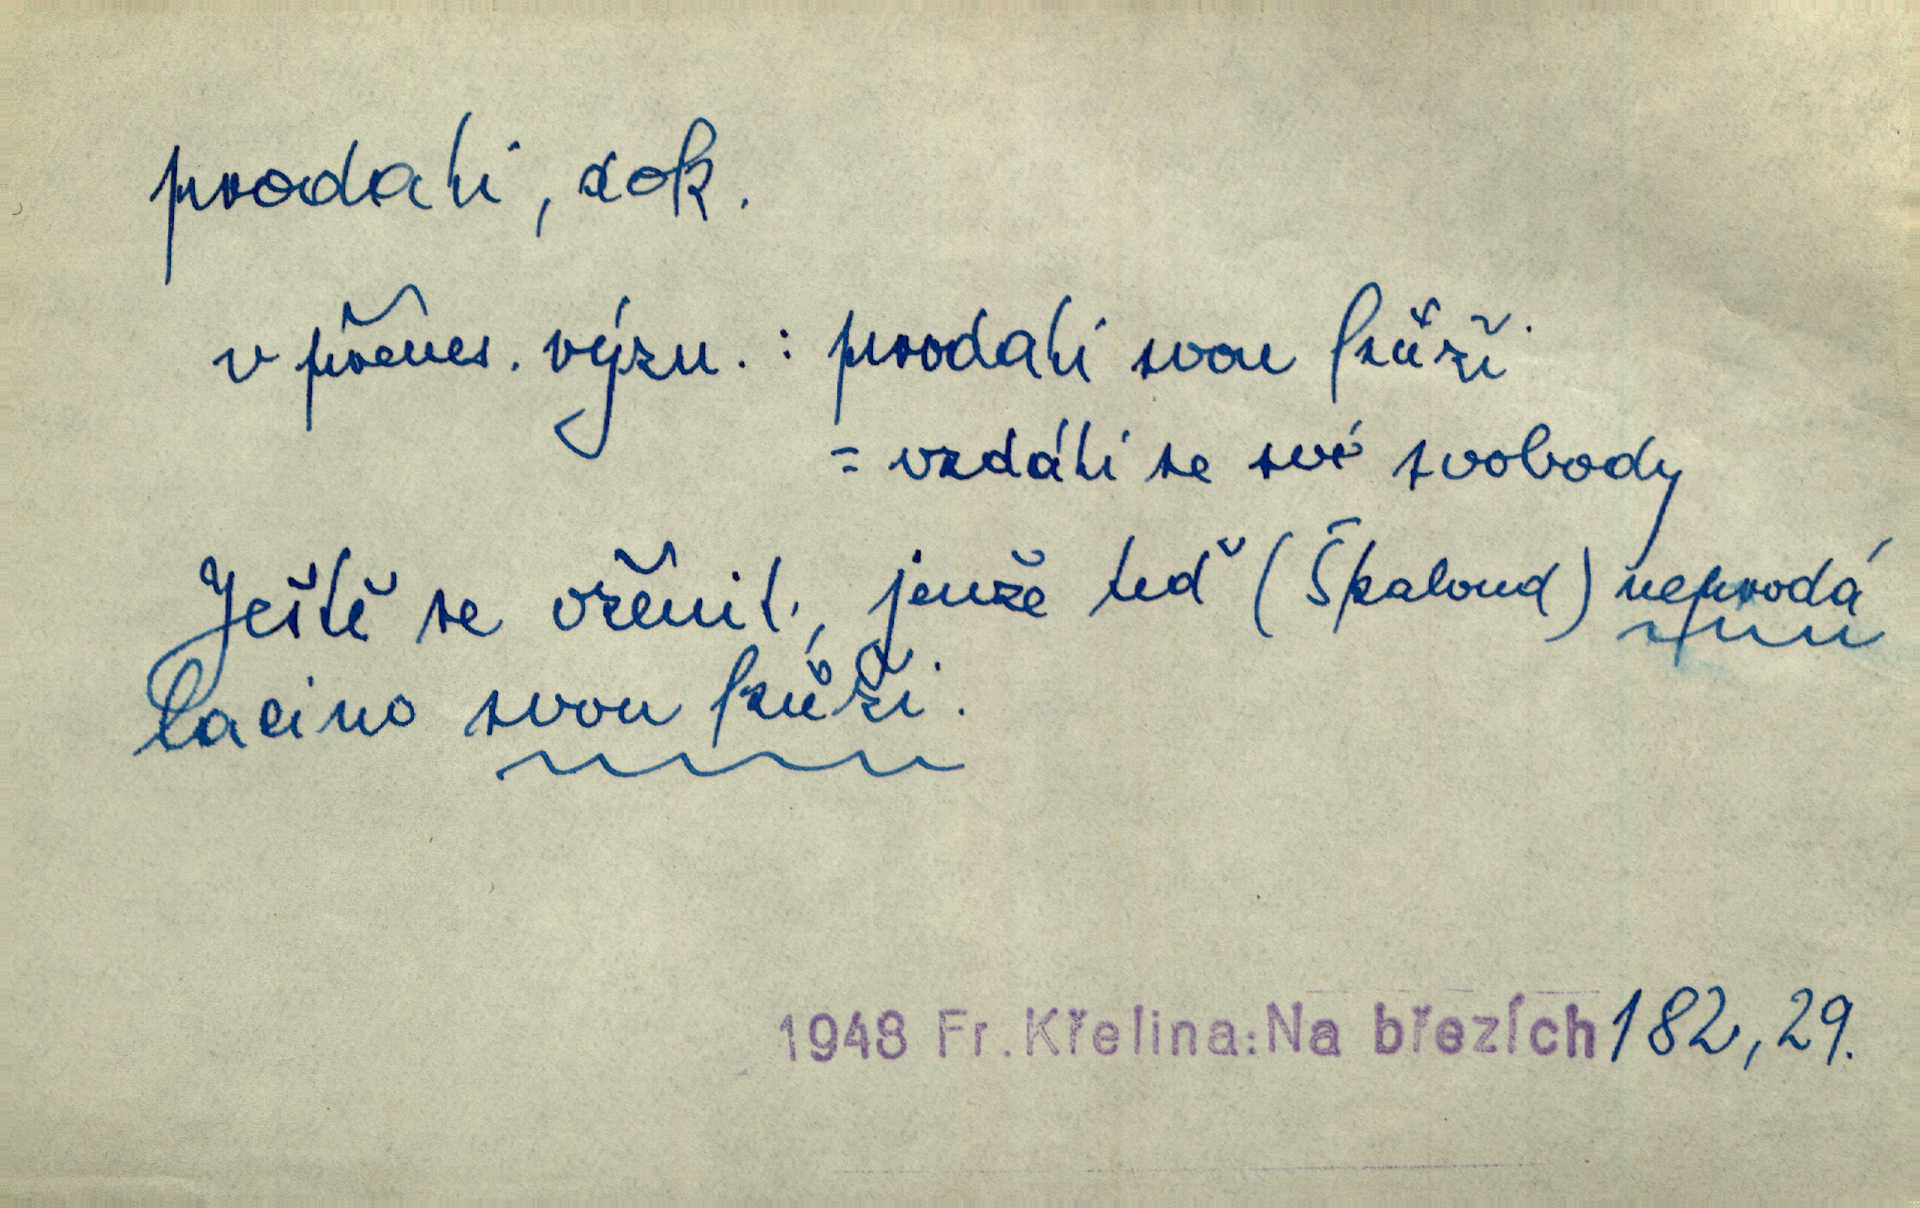 prodati, dok.
v přenes. význ. : prodati svou kůži
= vzdáti se své svobody
Ještě se oženit, jenže teď (Škaloud) neprodá
lacino svou kůži.
1948 Fr. Křelina: Na březích 182, 29.